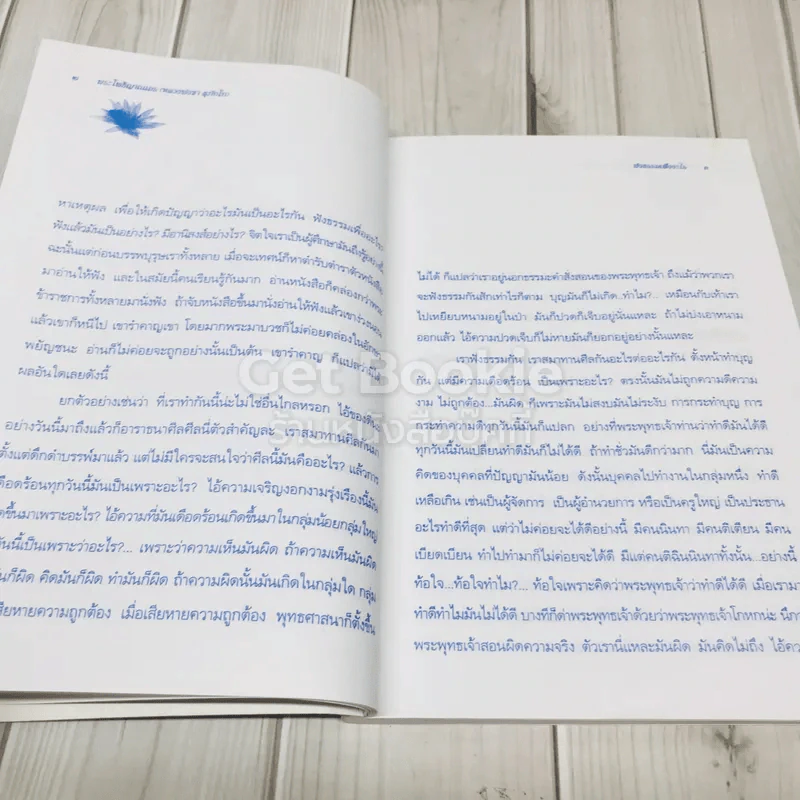 ๒ พระโพธิญาณเถร (หลวงพ่อชา สุภัทโท)
หาเหตุผล เพื่อให้เกิดปัญญาว่าอะไรมันเป็นอะไรกัน ฟังธรรมเพื่ออะไร
ฟังแล้วมันเป็นอย่างไร? มีอานิสงส์อย่างไร? จิตใจเราเป็นผู้ศึกษามันถึงรู้อย่าง
ฉะนั้นแต่ก่อนบรรพบุรุษเราทั้งหลาย เมื่อจะเทศน์ก็หาตำรับตำราตัวหนังสือ
มาอ่านให้ฟัง และในสมัยนี้คนเรียนรู้กันมาก อ่านหนังสือก็คล่องกว่าพระ
ข้าราชการทั้งหลายมานั่งฟัง ถ้าจับหนังสือขึ้นมานั่งอ่านให้ฟังแล้วเขารำคาญ
แล้วเขาก็หนีไป เขารำคาญเขา โดยมากพระมาบวชก็ไม่ค่อยคล่องในอักษร
พยัญชนะ อ่านก็ไม่ค่อยจะถูกอย่างนั้นเป็นต้น เขารำคาญ ก็แปลว่ามี
ผลอันใดเลยดังนี้
ยกตัวอย่างเช่นว่า ที่เราทำกันนี้น่ะไม่ใช่อื่นไกลหรอก ไอ้ของ
อย่างวันนี้มาถึงแล้วก็อาราธนาศีลศีลนี่ตัวสำคัญล่ะ เราสมาทานศีลกันมา
ตั้งแต่ดึกดำบรรพ์มาแล้ว แต่ไม่มีใครจะสนใจว่าศีลนี้มันคืออะไร? แล้วการ
เดือดร้อนทุกวันนี้มันเป็นเพราะอะไร? ไอ้ความเจริญงอกงามรุ่งเรืองนี้มัน
เกิดขึ้นมาเพราะอะไร? ไอ้ความที่มันเดือดร้อนเกิดขึ้นมาในกลุ่มน้อยกลุ่มใหญ่
วันนี้เป็นเพราะว่าอะไร?... เพราะว่าความเห็นมันผิด ถ้าความเห็นมันผิด
มันก็ผิด คิดมันก็ผิด ทำมันก็ผิด ถ้าความผิดนั้นมันเกิดในกลุ่มใด กลุ่ม
เสียหายความถูกต้อง เมื่อเสียหายความถูกต้อง พุทธศาสนาก็ตั้งขึ้น
๓
ไม่ได้ ก็แปลว่าเราอยู่นอกธรรมะคำสั่งสอนของพระพุทธเจ้า ถึงแม้ว่าพวกเรา
จะฟังธรรมกันสักเท่าไรก็ตาม บุญมันก็ไม่เกิด..ทำไม?... เหมือนกับเท้าเรา
ไปเหยียบหนามอยู่ในป่า มันก็ปวดก็เจ็บอยู่นั่นแหละ ถ้าไม่บ่งเอาหนาม
ออกแล้ว ไอ้ความปวดเจ็บก็ไม่หายมันก็ยอกอยู่อย่างนั้นแหละ
เราฟังธรรมกัน เราสมาทานศีลกันอะไรต่ออะไรกัน ตั้งหน้าทำบุญ
กัน แต่มีความเดือดร้อน เป็นเพราะอะไร? ตรงนั้นมันไม่ถูกความดีความ
งาม ไม่ถูกต้อง...มันผิด ก็เพราะมันไม่สงบมันไม่ระงับ การกระทำบุญ การ
กระทำความดีทุกวันนี้มันก็แปลก อย่างที่พระพุทธเจ้าท่านว่าทำดีมันได้ดี
ทุกวันนี้มันเปลี่ยนทำดีมันก็ไม่ได้ดี ถ้าทำชั่วมันดีกว่ามาก นี่มันเป็นความ
คิดของบุคคลที่ปัญญามันน้อย ดังนั้นบุคคลไปทำงานในกลุ่มหนึ่ง ทำดี
เหลือเกิน เช่นเป็นผู้จัดการ เป็นผู้อำนวยการ หรือเป็นครูใหญ่ เป็นประธาน
อะไรทำดีที่สุด แต่ว่าไม่ค่อยจะได้ดีอย่างนี้ มีคนนินทา มีคนติเตียน มีคน
เบียดเบียน ทำไปทำมาก็ไม่ค่อยจะได้ดี มีแต่คนติฉินนินทาทั้งนั้น...อย่างนี้
ท้อใจ...ท้อใจทำไม?... ท้อใจเพราะคิดว่าพระพุทธเจ้าว่าทำดีได้ดี เมื่อเรามา
ทำดีทำไมมันไม่ได้ดี บางทีก็ด่าพระพุทธเจ้าด้วยว่าพระพุทธเจ้าโกหกน่ะ นึกว่า
พระพุทธเจ้าสอนผิดความจริง ตัวเรานี่แหละมันผิด มันคิดไม่ถึง ไอ้ความ
Get Bookie
ร้านหนังสือบุ๊คกี้